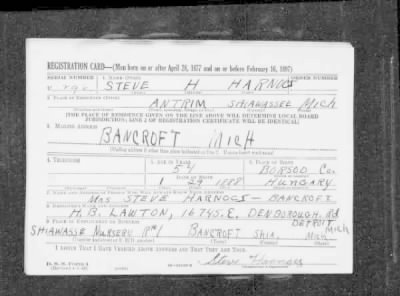 REGISTRATION CARD—(Men born on or after April 28, 1877 and on or before February 16, 1897)
SERIAL NUMBER 1. NAME (Print) ORDER NUMBER
STEVE H HARNOCS
2. PLACE OF RESIDENCE (Print)
ANTRIM SHIAWASSEE MICH
[THE PLACE OF RESIDENCE GIVEN ON THE LINE ABOVE WILL DETERMINE LOCAL BOARD
JURISDICTION; LINE 2 OF REGISTRATION CERTIFICATE WILL BE IDENTICAL]
3. MAILING ADDRESS
BANCROFT MICH
[Mailing address if other than place indicated on line 2. If same insert word same]
4. TELEPHONE 5. AGE IN YEARS 6. PLACE OF BIRTH
54 BORSOD Co.
DATE OF BIRTH
1 29 1888 HUNGARY
7. NAME AND ADDRESS OF PERSON WHO WILL ALWAYS KNOW YOUR ADDRESS
MRS STEVE HARNOCS - BANCROFT
8. EMPLOYER'S NAME AND ADDRESS
H.B. LAWTON, 16745. E, DENBOROUGH, Rd
DETROIT Mich
9. PLACE OF EMPLOYMENT OR BUSINESS
SHIAWASSE NURSERY R#1 BANCROFT SHIA. Mich
I AFFIRM THAT I HAVE VERIFIED ABOVE ANSWERS AND THAT THEY ARE TRUE.
D. S. S. Form 1
Steve